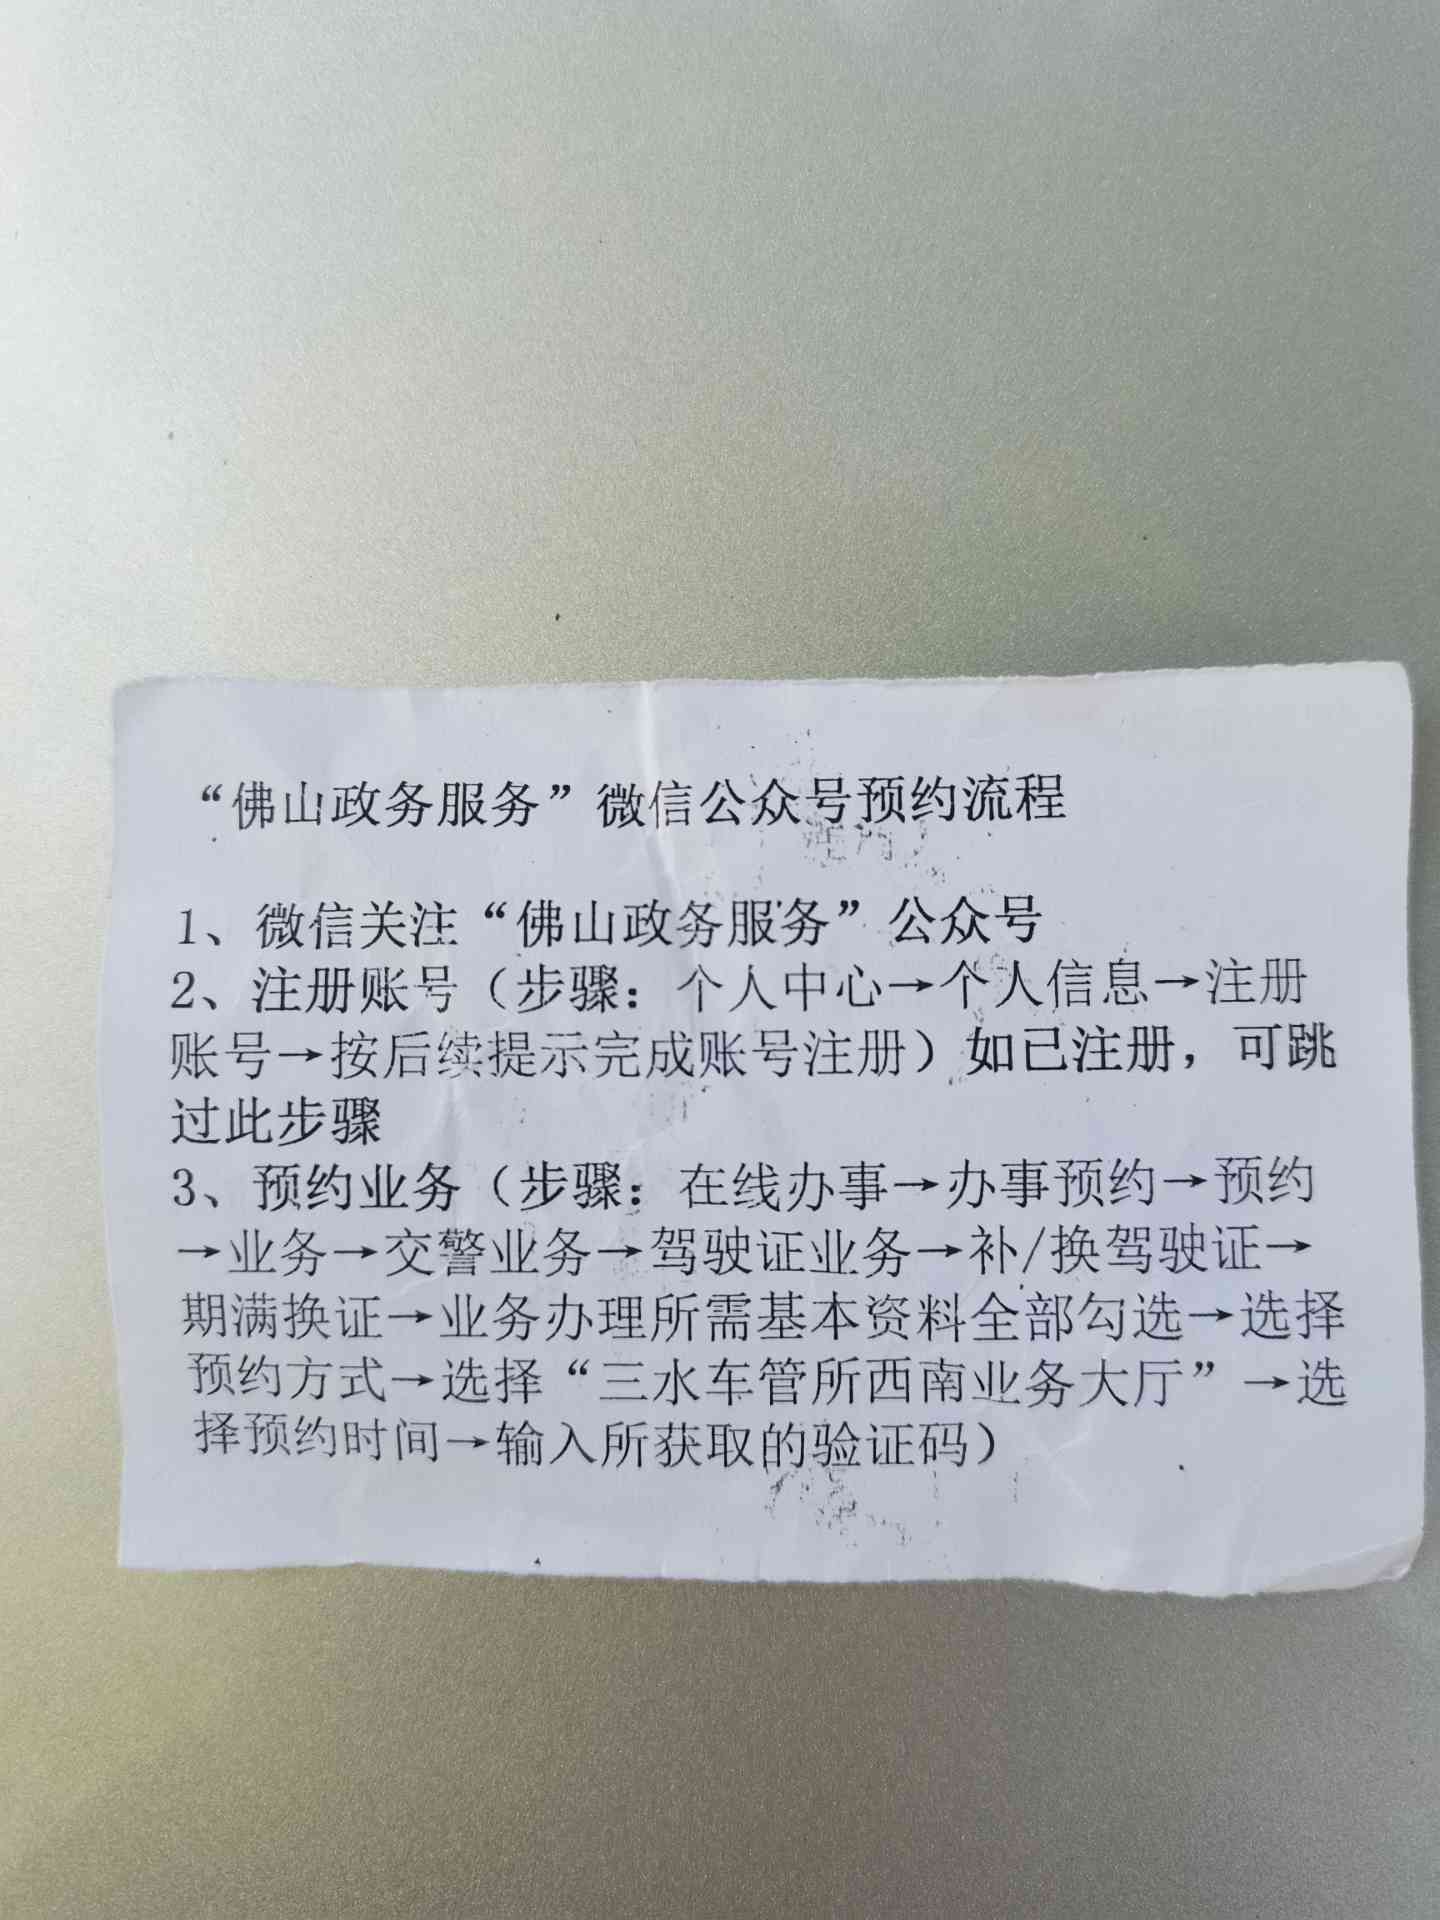 “佛山政务服务”微信公众号预约流程
1、微信关注“佛山政务服务”公众号
2、注册账号（步骤：个人中心→个人信息→注册
账号→按后续提示完成账号注册）如已注册，可跳
过此步骤
3、预约业务（步骤：在线办事→办事预约→预约
→业务→交警业务→驾驶证业务→补/换驾驶证→
期满换证→业务办理所需基本资料全部勾选→选择
预约方式→选择“三水车管所西南业务大厅”→选
择预约时间→输入所获取的验证码）